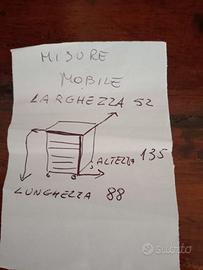 MISURE
MOBILE
LARGHEZZA 52
ALTEZZA 135
LUNGHEZZA 88
subito